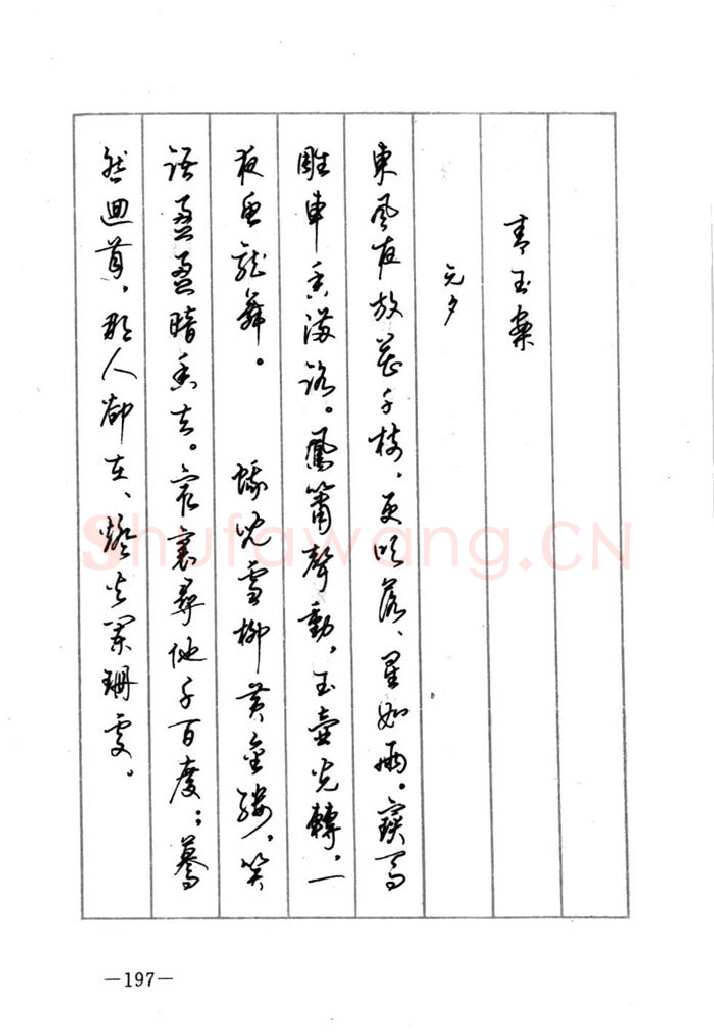 青玉案
元夕
東風夜放花千樹，更吹落、星如雨。寶馬
雕車香滿路。鳳簫聲動，玉壺光轉，一
夜魚龍舞。　蛾兒雪柳黃金縷，笑
語盈盈暗香去。衆裏尋他千百度；驀
然迴首，那人卻在、燈火闌珊處。
—197—
Shufawang.CN